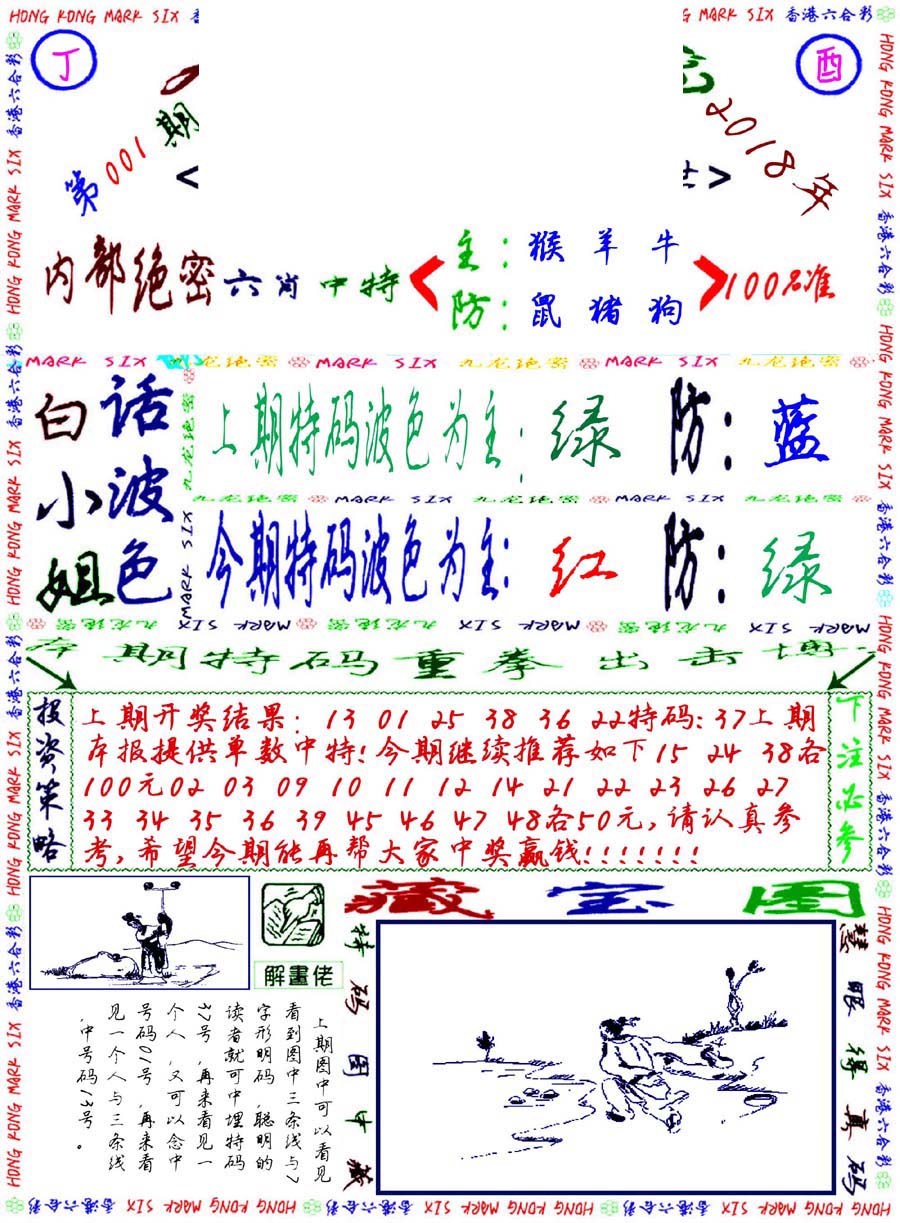 HONG KONG MARK SIX 香港六合彩
丁
酉
第001期
2018年
内部绝密六肖中特
主：猴羊牛
防：鼠猪狗
100%准
MARK SIX 九龙绝密 MARK SIX 九龙绝密 MARK SIX 九龙绝密
白话
小波
姐色
上期特码波色为主：绿 防：蓝
九龙绝密 MARK SIX 九龙绝密 MARK SIX 九龙绝密
今期特码波色为主：红 防：绿
九龙绝密 MARK SIX 九龙绝密 MARK SIX 九龙绝密 MARK SIX
期特码重拳出击
投资策略
上期开奖结果：13 01 25 38 36 22特码：37上期
本报提供单数中特！今期继续推荐如下15 24 38各
100元02 03 09 10 11 12 14 21 22 23 26 27
33 34 35 36 39 45 46 47 48各50元，请认真参
考，希望今期能再帮大家中奖赢钱！！！！！！！
下注必参
解畫佬
藏宝图
特码图中藏
慧眼得真码
上期图中可以看见
看到图中三条线与7
字形明码，聪明的
读者就可中埋特码
37号，再来看见一
个人，又可以念中
号码01号，再来看
见一个人与三条线
，中号码13号。
HONG KONG MARK SIX 香港六合彩